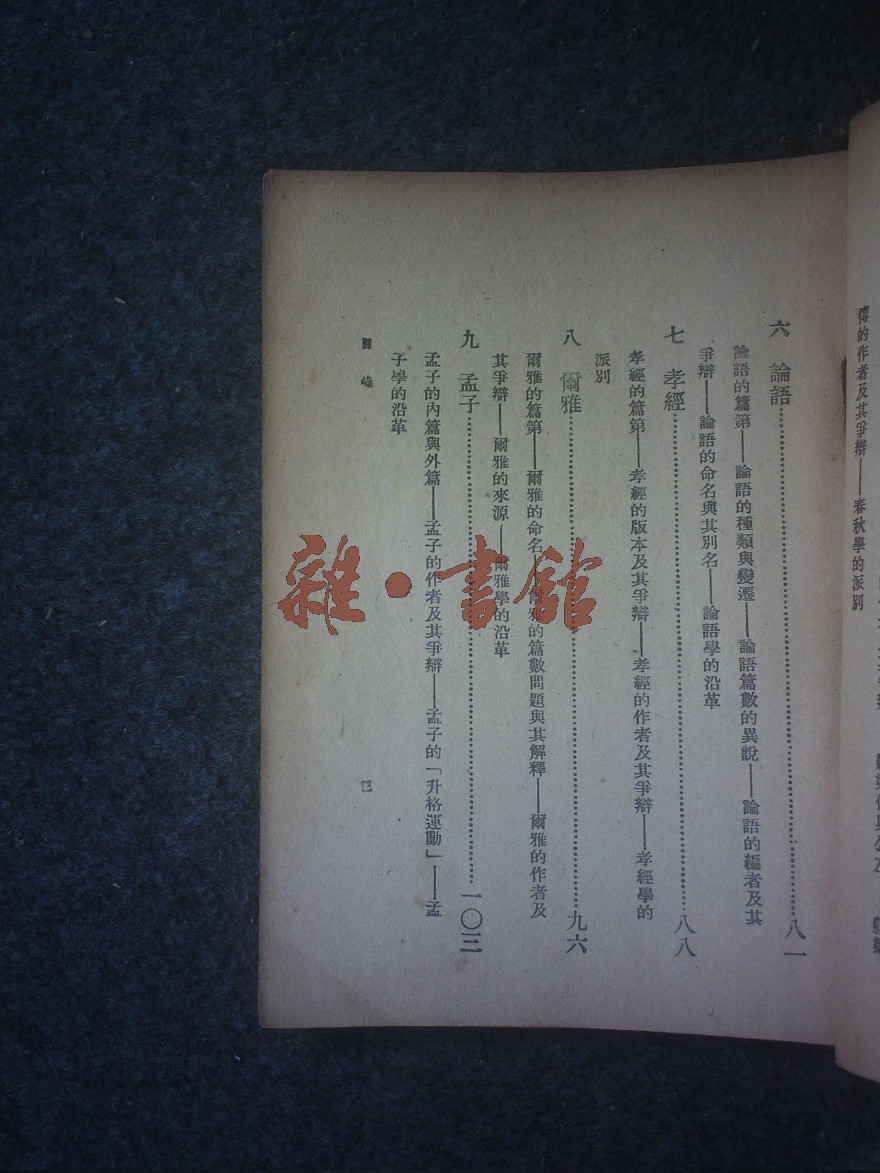 傳的作者及其爭辯——春秋學的派別
六 論語……八一
論語的篇第——論語的種類與變遷——論語篇數的異說——論語的編者及其
爭辯——論語的命名與其別名——論語學的沿革
七 孝經……八八
孝經的篇第——孝經的版本及其爭辯——孝經的作者及其爭辯——孝經學的
派別
八 爾雅……九六
爾雅的篇第——爾雅的命名——爾雅的篇數問題與其解釋——爾雅的作者及
其爭辯——爾雅的來源——爾雅學的沿革
九 孟子……一〇三
孟子的內篇與外篇——孟子的作者及其爭辯——孟子的「升格運動」——孟
子學的沿革
三
雜·書館